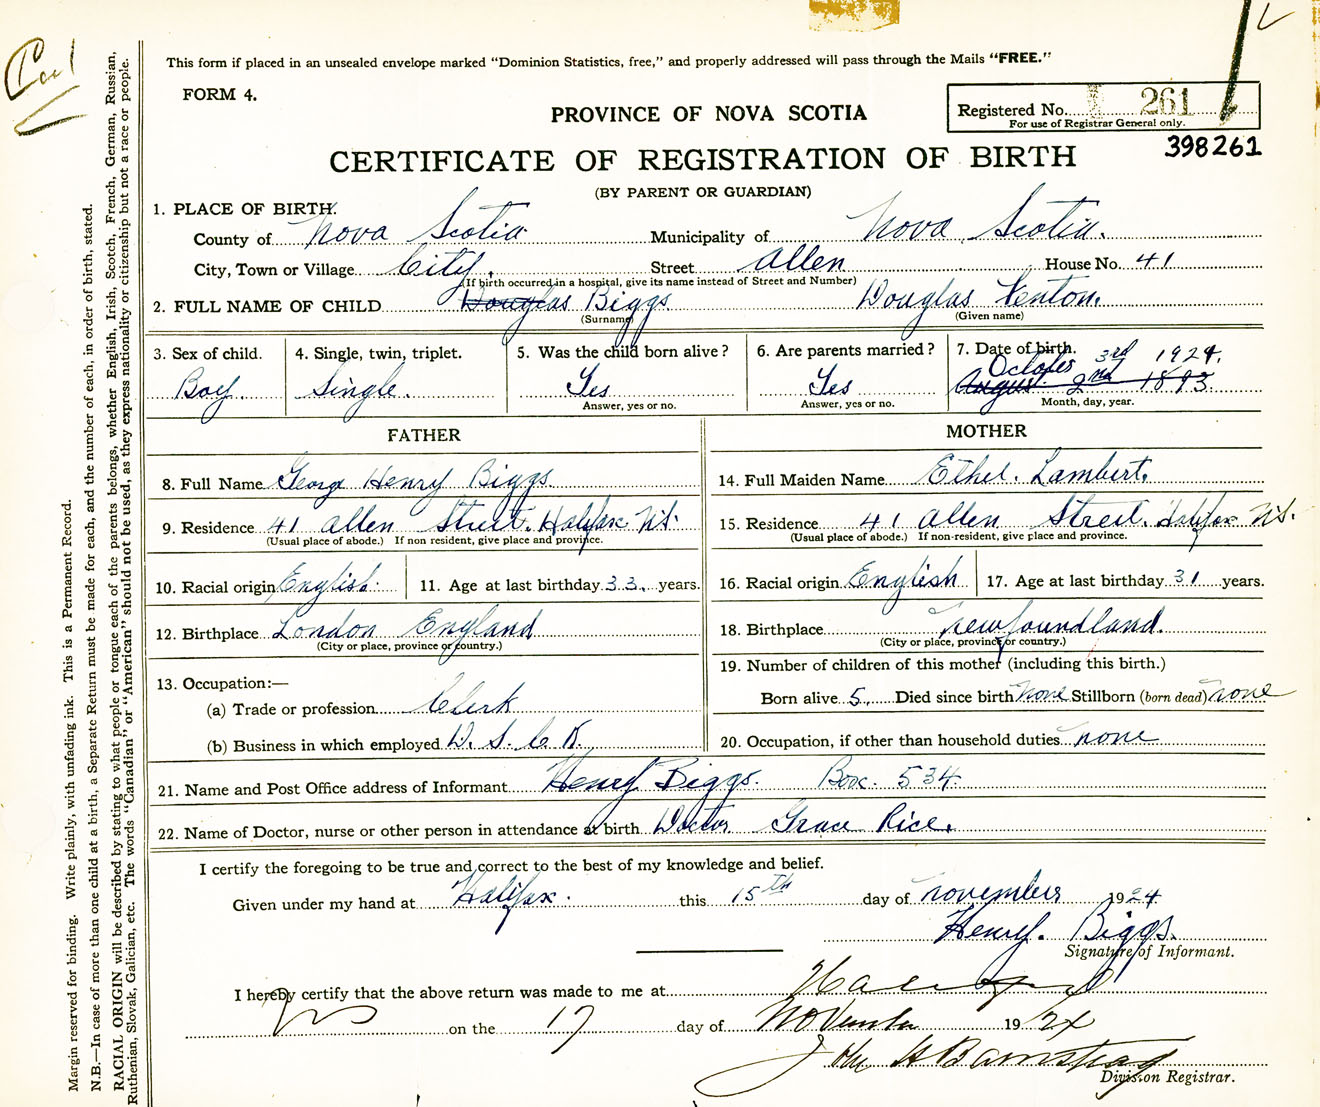 This form if placed in an unsealed envelope marked "Dominion Statistics, free," and properly addressed will pass through the Mails "FREE."
FORM 4.
PROVINCE OF NOVA SCOTIA
Registered No. 261
For use of Registrar General only.
398261
CERTIFICATE OF REGISTRATION OF BIRTH
(BY PARENT OR GUARDIAN)
1. PLACE OF BIRTH.
County of Nova Scotia Municipality of Nova Scotia.
City, Town or Village City. Street Allen House No. 41
(If birth occurred in a hospital, give its name instead of Street and Number)
2. FULL NAME OF CHILD Douglas Biggs Douglas Venton.
(Surname) (Given name)
3. Sex of child. 4. Single, twin, triplet. 5. Was the child born alive? 6. Are parents married? 7. Date of birth.
October 3rd 1924.
Boy. Single. Yes Yes August 2nd 1893.
Answer, yes or no. Answer, yes or no. Month, day, year.
FATHER MOTHER
8. Full Name George Henry Biggs. 14. Full Maiden Name Ethel. Lambert.
9. Residence 41 Allen Street. Halifax N.S. 15. Residence 41 Allen Street. Halifax N.S.
(Usual place of abode.) If non resident, give place and province. (Usual place of abode.) If non-resident, give place and province.
10. Racial origin English. 11. Age at last birthday 33. years. 16. Racial origin English 17. Age at last birthday 31 years.
12. Birthplace London England 18. Birthplace Newfoundland.
(City or place, province or country.) (City or place, province or country.)
13. Occupation:— 19. Number of children of this mother (including this birth.)
(a) Trade or profession Clerk Born alive 5. Died since birth none Stillborn (born dead) none
(b) Business in which employed D. S. C. R. 20. Occupation, if other than household duties none
21. Name and Post Office address of Informant Henry Biggs. Box. 534.
22. Name of Doctor, nurse or other person in attendance at birth Doctor Grace Rice.
I certify the foregoing to be true and correct to the best of my knowledge and belief.
Given under my hand at Halifax. this 15th day of November 1924
Henry. Biggs.
Signature of Informant.
I hereby certify that the above return was made to me at Halifax
NS on the 17 day of November 1924
John H Barnstead
Division Registrar.
Margin reserved for binding. Write plainly, with unfading ink. This is a Permanent Record.
N.B.—In case of more than one child at a birth, a Separate Return must be made for each, and the number of each, in order of birth, stated.
RACIAL ORIGIN will be described by stating to what people or tongue each of the parents belongs, whether English, Irish, Scotch, French, German, Russian,
Ruthenian, Slovak, Galician, etc. The words "Canadian" or "American" should not be used, as they express nationality or citizenship but not a race or people.